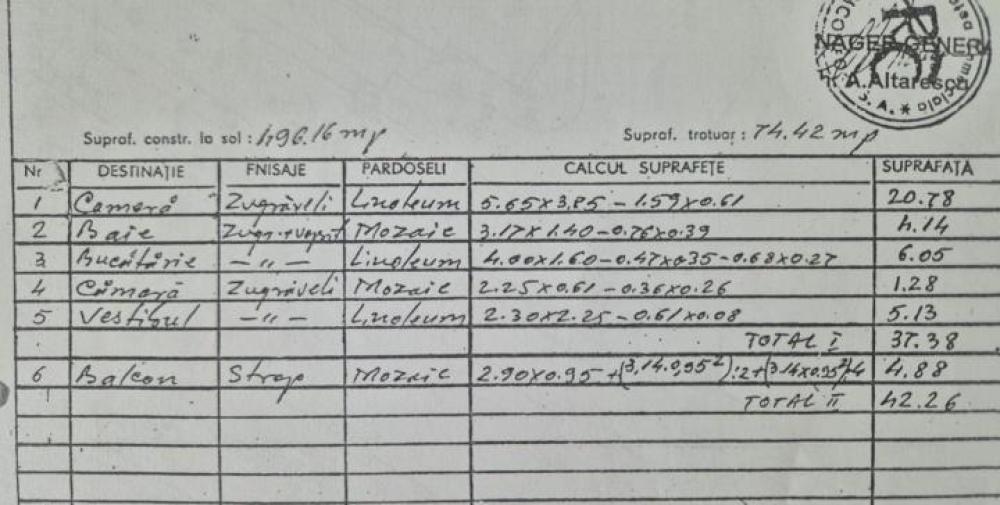 NAGER GENER
A.Altaresco
Supraf. constr. la sol : 496.16 mp Supraf. trotuar : 74.42 mp
Nr DESTINAȚIE FNISAJE PARDOSELI CALCUL SUPRAFEȚE SUPRAFAȚA
1 Cameră Zugrăveli Linoleum 5.65x3.85 - 1.59x0.61 20.78
2 Baie Mozaic 3.17x1.40-0.76x0.39 4.14
3 Bucătărie —"— Linoleum 4.00x1.60-0.47x0.35-0.68x0.27 6.05
4 Cămară Zugrăveli Mozaic 2.25x0.61-0.36x0.26 1.28
5 Vestibul —"— Linoleum 2.30x2.25-0.61x0.08 5.13
TOTAL I 37.38
6 Balcon Strop Mozaic 2.90x0.95+(3,14.0,95²):2+(3.14x0.95²):4 4.88
TOTAL II 42.26